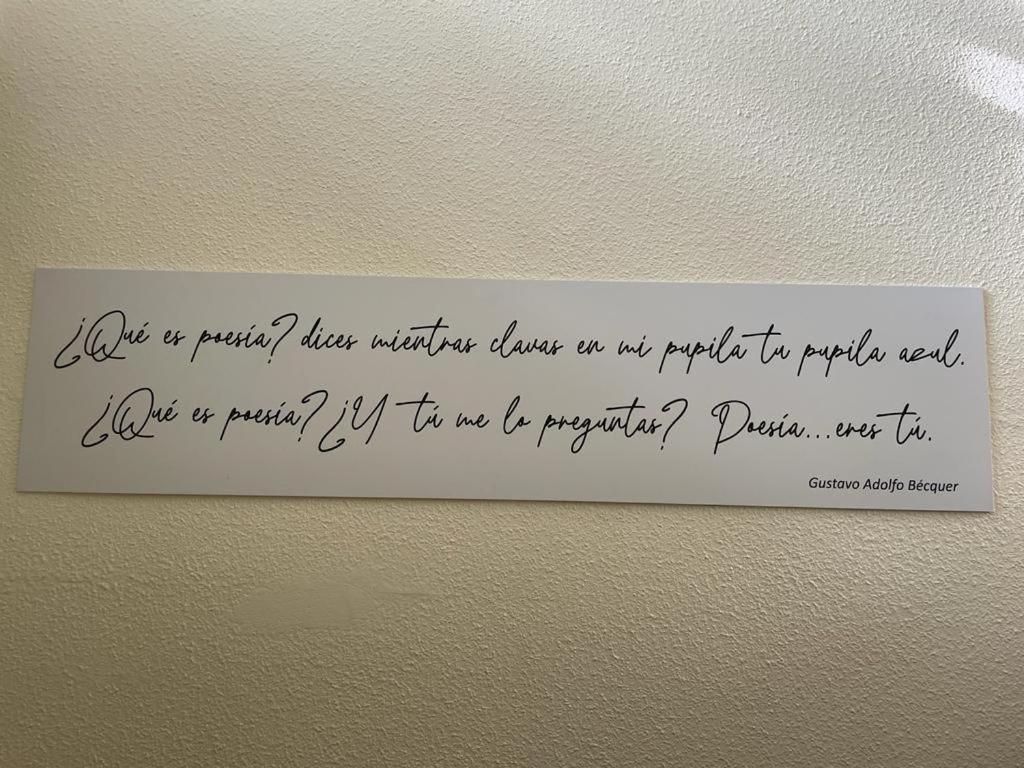 ¿Qué es poesía? dices mientras clavas en mi pupila tu pupila azul.
¿Qué es poesía? ¿Y tú me lo preguntas? Poesía...eres tú.
Gustavo Adolfo Bécquer